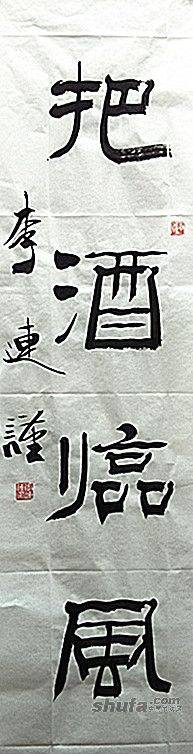 把酒临风
李连謹
shufa.com